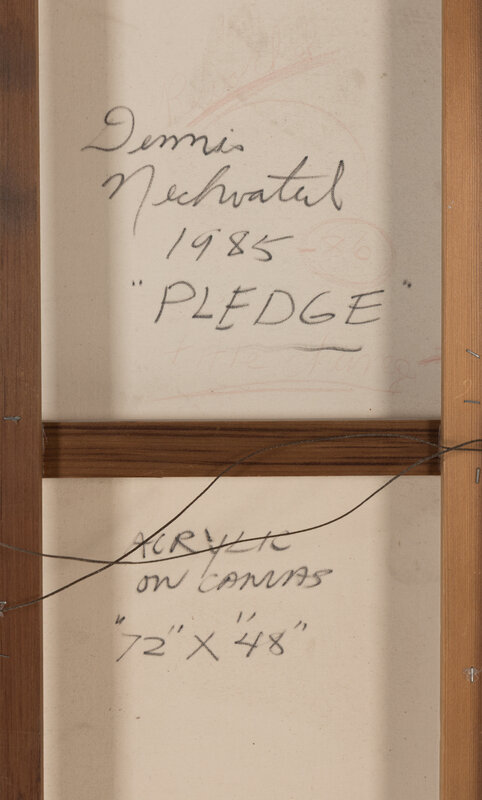 Dennis
Nechvatal
1985
"PLEDGE"
ACRYLIC
ON CANVAS
"72" X "48"